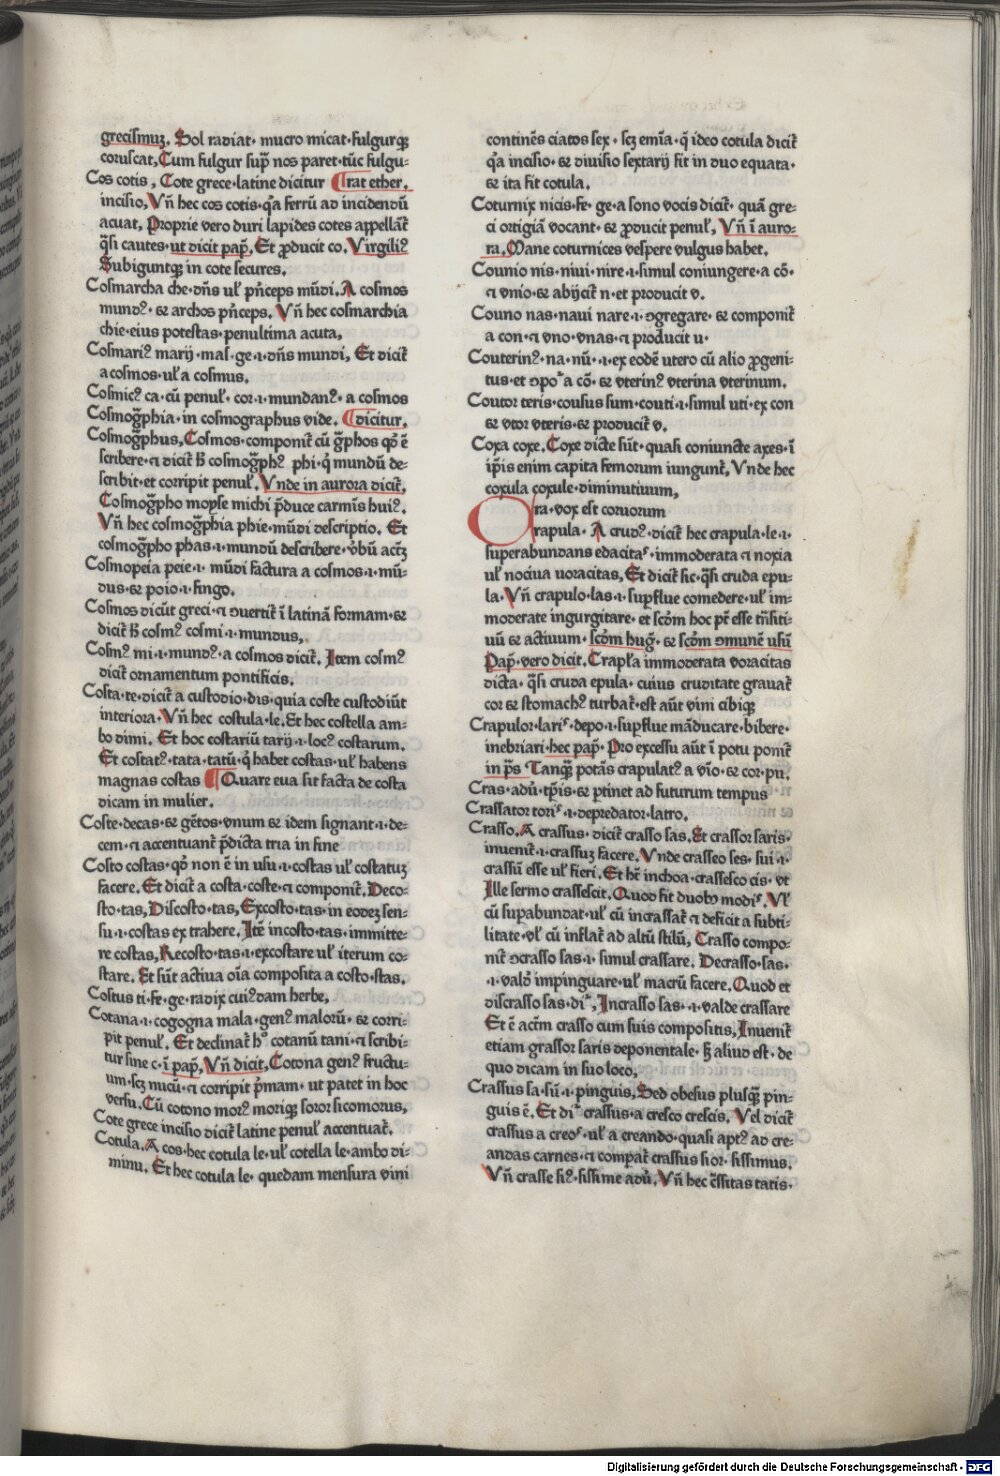 grecismuʒ. Sol radiat· mucro micat·fulgurqꝫ
coruscat, Cum fulgur suꝑ nos paret·tūc fulgu-
Cos cotis, Cote grece·latine dicitur ¶rat ether.
incisio, Vñ hec cos cotis·qͣa ferrū ad incidendū
acuat, Proprie vero duri lapides cotes appellāt̄
qͣsi cautes·ut dicit pap̄, Et ꝓducit co. Virgiliꝰ
Subiguntqꝫ in cote secures.
Cosmarcha che·dn̄s ul' pn̄ceps mūdi. A cosmos
mundꝰ·⁊ archos pn̄ceps. Vñ hec cosmarchia
chie·eius potestas·penultima acuta,
Cosmariꝰ marij·mas·ge·i·dn̄s mundi, Et dicit̄
a cosmos·ul'a cosmus.
Cosmicꝰ ca·cū penul'·cor·i·mundanꝰ·a cosmos
Cosmog̃phia·in cosmographus vide. ¶dicitur.
Cosmog̃phus, Cosmos·componit̄ cū g̃phos qd̓ ē
scribere·⁊ dicit̄ h̄ cosmog̃phꝰ phi·q̓ mundū de-
scribit·et corripit penul'. Vnde in aurora dicit̄,
Cosmog̃pho mopse michi p̄duce carmīs huiꝰ.
Vñ hec cosmog̃phia phie·mūdi descriptio. Et
cosmog̃pho phas·i·mundū describere·v̓bū actʒ
Cosmopeia peie·i·mūdi factura a cosmos·i·mū-
dus·⁊ poio·i·fingo.
Cosmos dicūt greci·⁊ ꝯuertit̄ ī latinā formam·⁊
dicit̄ h̄ cosmꝰ cosmi·i·mundus,
Cosmꝰ mi·i·mundꝰ·a cosmos dicit̄. Item cosmꝰ
dicit̄ ornamentum pontificis.
Costa·te·dicit̄ a custodio·dis·quia coste custodiūt
interiora·Vñ hec costula·le. Et hec costella am-
bo dimi. Et hoc costariū tarij·i·locꝰ costarum.
Et costatꝰ·tata·tatū·q̓ habet costas·ul' habens
magnas costas ¶Quare eua sit facta de costa
dicam in mulier.
Coste·decas·⁊ gētos·vnum ⁊ idem signant·i·de-
cem·⁊ accentuant̄ p̄dicta tria in fine
Costo costas·qd̓ non ē in usu·i·costas ul' costatuʒ
facere. Et dicit̄ a costa·coste·⁊ componit̄. Deco-
sto·tas, Discosto·tas, Excosto·tas·in eodeʒ sen-
su·i·costas extrahere. Itē incosto·tas·immitte-
re costas, Recosto·tas·i·excostare ul' iterum co-
stare. Et sūt actiua oīa composita a costo·stas.
Costus ti·fe·ge·radix cuiꝰdam herbe,
Cotana·i·cogogna mala·genꝰ malorū·⁊ corri-
pit penul'. Et declinat̄ hͦ cotanū tani·⁊ scribi-
tur sine c·ī pap̄, Vñ dicit, Cotona genꝰ fructu-
um·scʒ nucū·⁊ corripit p̓mam·ut patet in hoc
versu. Cū cotono morꝰ moriqꝫ soror sicomorus,
Cote grece incisio dicit̄ latine penul' accentuat̄.
Cotula. A cos·hec cotula le·ul' cotella le·ambo di-
minu. Et hec cotula le·quedam mensura vini
continēs ciatos sex·scʒ emīa·q̓ ideo cotula dicit̄
qͣa incisio·⁊ diuisio sextarij fit in duo equata·
⁊ ita fit cotula.
Coturnix nicis·fe·ge·a sono vocis dicit̄·quā gre-
ci ortigiā vocant·⁊ ꝓducit penul', Vñ ī auro-
ra. Mane coturnices vespere vulgus habet.
Counio nis·niui·nire·i·simul coniungere·a cō·
⁊ vnio·⁊ abijcit̄ n·et producit v.
Couno nas·naui nare·i·ꝯgregare·⁊ componit̄
a con·⁊ vno·vnas·⁊ producit u·
Couterinꝰ·na·nū··i·ex eodē utero cū alio ꝓgeni-
tus·et ꝯpoͣ a cō·⁊ vterinꝰ vterina vterinum.
Coutor teris·cousus sum·couti·i·simul uti·ex con
⁊ vtor vteris·⁊ producit v.
Coxa coxe. Coxe dicte sūt·quasi coniuncte axes·ī
ip̄is enim capita femorum iungunt̄, Vnde hec
coxula coxule·diminutiuum,
Cra·vox est coruorum
Crapula·A crudꝰ·dicit̄ hec crapula·le·i·
superabundans edacitaˢ·immoderata ⁊ noxia
ul' nociua uoracitas, Et dicit̄ sic·qͣsi cruda epu-
la·Vñ crapulo·las·i·suꝑflue comedere·ul' im-
moderate ingurgitare·et scd̓m hoc pt̄ esse trn̄siti-
uū ⁊ actiuum·scd̓m hug̃·⁊ scd̓m ꝯmunē usū
Pap̄·vero dicit. Crapl'a immoderata voracitas
dicta·qͣsi cruda epula·cuius cruditate grauat̄
cor ⁊ stomachꝰ turbat̄·est aūt vini cibiqꝫ
Crapulor·lariˢ·depo·i·suꝑflue māducare·bibere·
inebriari·hec pap̄·Pro excessu aūt ī potu ponit̄
in p̄s Tanqͣꝫ potās crapulatꝰ a vīo·⁊ cor·pu.
Cras·adu̓·tp̄is·⁊ ꝑtinet ad futurum tempus
Crassator toriˢ·i·depredator·latro.
Crasso. A crassus·dicit̄ crasso sas. Et crassor saris·
inuenit̄·i·crassuʒ facere. Vnde crasseo ses·sui·i·
crassū esse ul' fieri. Et ht̄ inchoa·crassesco cis·vt
Ille sermo crassescit. Quod fit duobꝰ modiˢ. Vl'
cū suꝑabundat·ul' cū incrassat̄ ⁊ deficit a subti-
litate·vl' cū inflat̄ ad altū stilū, Crasso compo-
nit̄ ꝯcrasso sas·i·simul crassare. Decrasso·sas·
·i·vald̓ impinguare·ul' macrū facere. Quod et
discrasso sas·diͣ, Incrasso sas··i·valde crassare
Et ē actm̄ crasso cum suis compositis, Inuenit̄
etiam grassor saris deponentale·sʒ aliud est·de
quo dicam in suo loco,
Crassus sa·sū·i·pinguis, Sed obesus plusqͣꝫ pin-
guis ē. Et diͣ crassus·a cresco crescis. Vel dicit̄
crassus a creoˢ·ul'a creando·quasi aptꝰ ad cre-
andas carnes·⁊ comparat̄ crassus sior·sissimus.
Vñ crasse siꝰ·sissime adu̓, Vñ hec c̄ssitas tatis·
Digitalisierung gefördert durch die Deutsche Forschungsgemeinschaft · DFG